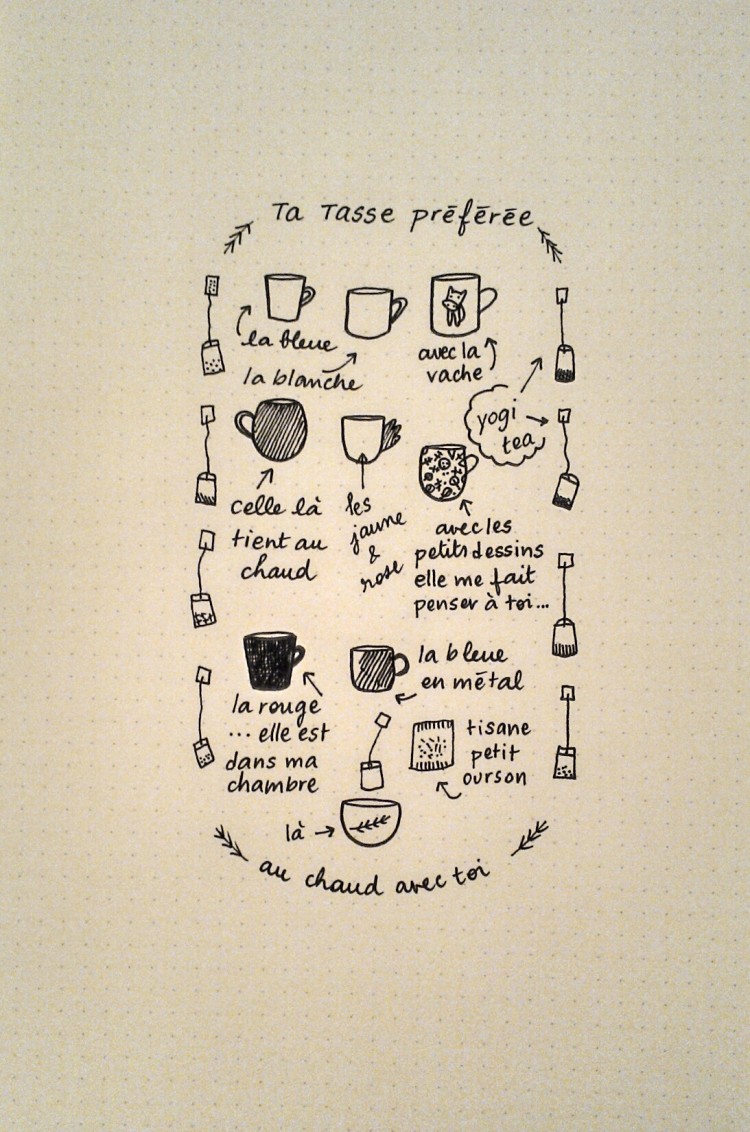 Ta Tasse préférée
la bleue
la blanche
avec la
vache
yogi
tea
celle là
tient au
chaud
les
jaune
&
rose
avec les
petits dessins
elle me fait
penser à toi...
la rouge
... elle est
dans ma
chambre
la bleue
en métal
tisane
petit
ourson
là
au chaud avec toi